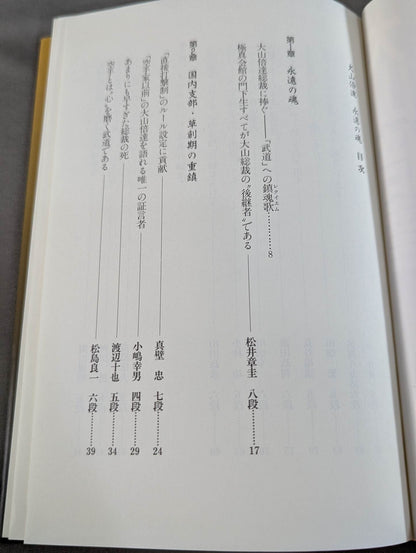 大山倍達 永遠の魂 目次
第1章 永遠の魂
大山倍達総裁に捧ぐ――「武道」への鎮魂歌レクイエム………8
極真会館の門下生すべてが大山総裁の“後継者”である――松井章圭 八段………17
第2章 国内支部・草創期の重鎮
「直接打撃制」のルール設定に貢献――真壁 忠 七段………24
“空手家以前”の大山倍達を語れる唯一の証言者――小嶋幸男 四段………29
あまりにも早すぎた総裁の死――渡辺十也 五段………34
空手とは“心”を磨く武道である――松島良一 六段………39